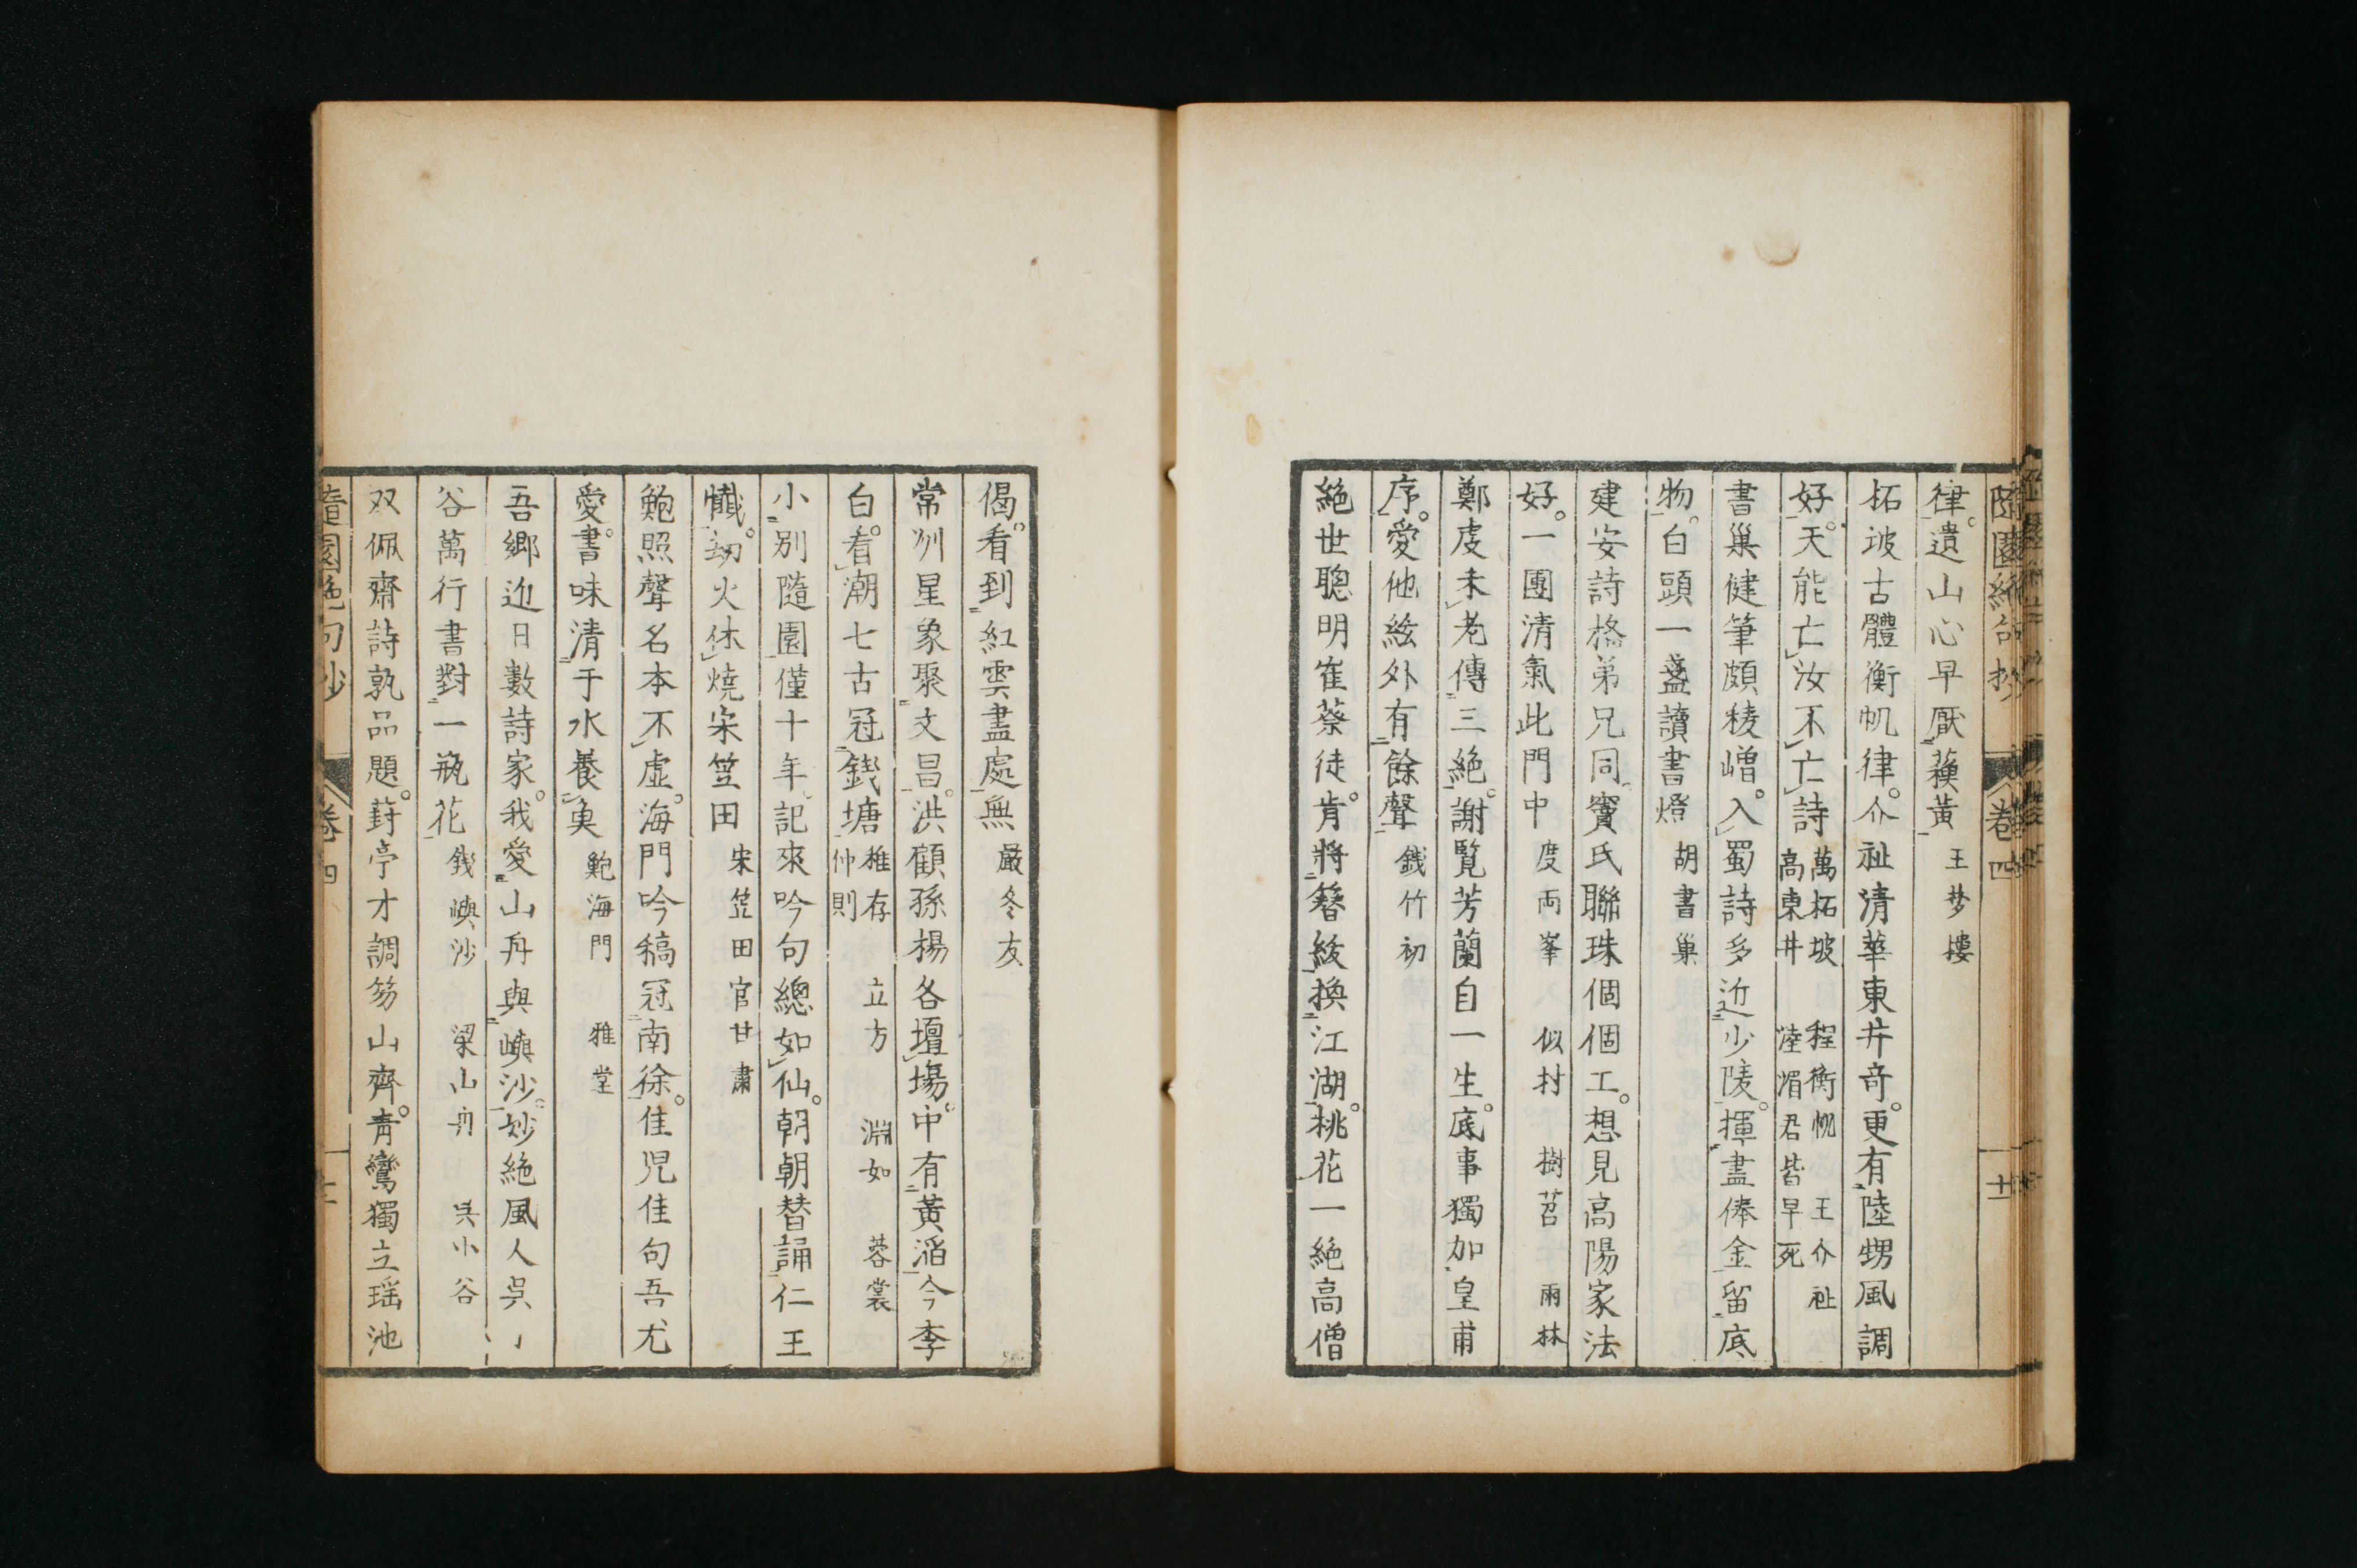 隨園絕句抄 卷四 十
律。遺山心早厭蘓黃 王梦摟
柘坡古體衡帆律。介祉清華東井奇。更有陸甥風調
好。天能亡汝不亡詩 萬柘坡 程衡帆 王介祉 高東井 陸湄君皆早死
書巢健筆頗稜嶒。入蜀詩多近少陵。揮盡俸金留底
物。白頭一盞讀書燈 胡書巢
建安詩格弟兄同。竇氏聯珠個個工。想見高陽家法
好。一團清氣此門中 度両峯 似村 樹苕 雨林
鄭虔未老傳三絕。謝覽芳蘭自一生。底事獨加皇甫
序。愛他絃外有餘聲 錢竹初
絕世聰明崔蔡徒。肯將簪紱換江湖。桃花一絕高僧
偈。看到紅雲盡處無 嚴冬友
常州星象聚文昌。洪顧孫楊各壇場。中有黃滔今李
白。看潮七古冠錢塘 稚存 立方 淵如 蓉裳 仲則
小別隨園僅十年。記來吟句總如仙。朝朝替誦仁王
懺。刼火休燒宋笠田 宋笠田官甘肅
鮑照聲名本不虛。海門吟稿冠南徐。佳児佳句吾尤
愛。書味清于水養奐 鮑海門 雅堂
吾鄉近日數詩家。我愛山舟與嶼沙。妙絕風人吳小
谷萬行書對一瓶花 錢嶼沙 梁山舟 吳小谷
双佩齋詩孰品題。葑亭才調笏山齊。青鸞獨立瑶池
隨園絕句抄 卷四